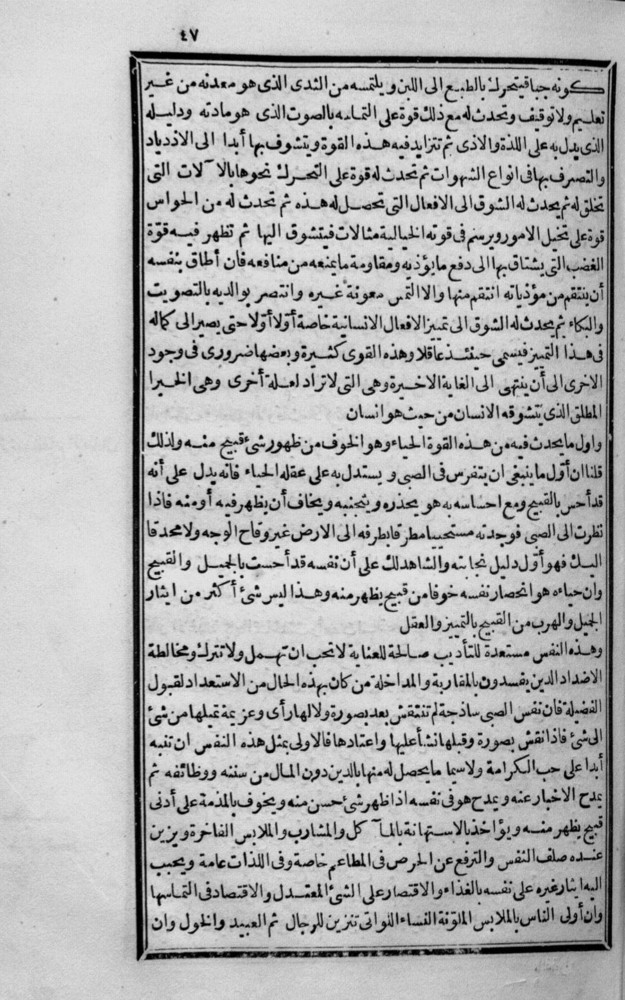 ٤٧
كونه جنينا فيتحرك بالطبع الى اللبن ويلتمسه من الثدى الذى هو معدنه من غير
تعليم ولا توقيف وتحدث له مع ذلك قوة على التماسه بالصوت الذى هو مادته ودليله
الذى يدل به على اللذة والاذى ثم تتزايد فيه هذه القوة ويتشوف بها أبدا الى الازدياد
والتصرف بها فى انواع الشهوات ثم تحدث له قوة على التحرك نحوها بالا ۤلات التى
تخلق له ثم يحدث له الشوق الى الافعال التى تحصل له هذه ثم تحدث له من الحواس
قوة على تخيل الامور ويرسم فى قوته الخيالية مثالات فيتشوق اليها ثم تظهر فيه قوّة
الغضب التى يشتاق بها الى دفع ما يؤذيه ومقاومة ما يمنعه من منافعه فان أطاق بنفسه
أن ينتقم من مؤذياته انتقم منها والا التمس معونة غيره وانتصر بوالديه بالتصويت
والبكاء ثم يحدث له الشوق الى تمييز الافعال الانسانية خاصة أوّلا أوّلا حتى يصير الى كماله
فى هذا التمييز فيسمى حينئذ عاقلا وهذه القوى كثيرة وبعضها ضرورى فى وجود
الاخرى الى أن ينتهى الى الغاية الاخيرة وهى التى لا تراد لعلة أخرى وهى الخير ا
المطلق الذى يتشوقه الانسان من حيث هو انسان
واول ما يحدث فيه من هذه القوة الحياء وهو الخوف من ظهور شئ قبيح منه ولذلك
قلنا ان أول ما ينبغى ان يتفرس فى الصبى ويستدل به على عقله الحياء فانه يدل على أنه
قد أحس بالقبيح ومع احساسه به هو يحذره ويتجنبه ويخاف أن يظهر فيه أو منه فاذا
نظرت الى الصبى فوجدته مستحييا مطرقا بطرفه الى الارض غير وقاح الوجه ولا محدقا
اليك فهو أوّل دليل نجابته والشاهد لك على أن نفسه قد أحست بالجميل والقبيح
وان حياءه هو انحصار نفسه خوفا من قبيح يظهر منه وهذا ليس شئ أكثر من ايثار
الجميل والهرب من القبيح بالتمييز والعقل
وهذه النفس مستعدة للتأديب صالحة للعناية لا تجب ان تهمل ولا تترك ومخالطة
الاضداد الذين يفسدون بالمقاربة والمداخلة من كان بهذه الحال من الاستعداد لقبول
الفضيلة فان نفس الصبى ساذجة لم تنتقش بعد بصورة ولا لها رأى وعزيمة تميلها من شئ
الى شئ فاذا نقش بصورة وقبلها نشأ عليها واعتادها فالاولى بمثل هذه النفس ان تنبه
أبدا على حب الكرامة ولا سيما ما يحصل له منها بالدين دون المال من سننه ووظائفه ثم
يمدح الاخيار عنده ويمدح هو فى نفسه اذا ظهر شئ حسن منه ويخوف بالمذمة على أدنى
قبيح يظهر منه ويؤاخذ بالاستهانة بالمآ كل والمشارب والملابس الفاخرة ويزين
عنده صلف النفس والترفع عن الحرص فى المطاعم خاصة وفى اللذات عامة ويحبب
اليه ايثار غيره على نفسه بالغذاء والاقتصار على الشئ المعتدل والاقتصاد فى التماسها
وان أولى الناس بالملابس الملوّنة النساء اللواتى تتزين للرجال ثم العبيد والخول وان